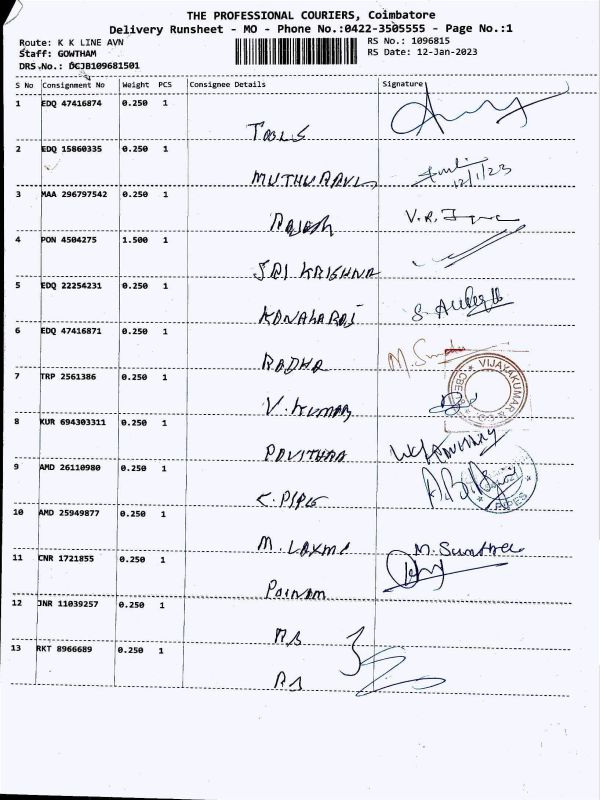 THE PROFESSIONAL COURIERS, Coimbatore
Delivery Runsheet - MO - Phone No.:0422-3505555 - Page No.:1
Route: K K LINE AVN
RS No.: 1096815
Staff: GOWTHAM
RS Date: 12-Jan-2023
DRS.No.: DCJB109681501
S No Consignment No Weight PCS Consignee Details Signature
1 EDQ 47416874 0.250 1
TOOLS
2 EDQ 15860335 0.250 1
MUTHURAVL
12/1/23
3 MAA 296797542 0.250 1
RAJESH
V.R.
4 PON 4504275 1.500 1
SRI KRISHNA
5 EDQ 22254231 0.250 1
KANAHARAJ
S.
6 EDQ 47416871 0.250 1
RADHA
M.
7 TRP 2561386 0.250 1
VIJAYAKUMAR & CO
V. KUMAR
8 KUR 694303311 0.250 1
PAVITHRA
9 AMD 26110980 0.250 1
K. PIPE
PIPES
10 AMD 25949877 0.250 1
M. LAXMI
M.
11 CNR 1721855 0.250 1
Poinam
12 JNR 11039257 0.250 1
RS
13 RKT 8966689 0.250 1
RS